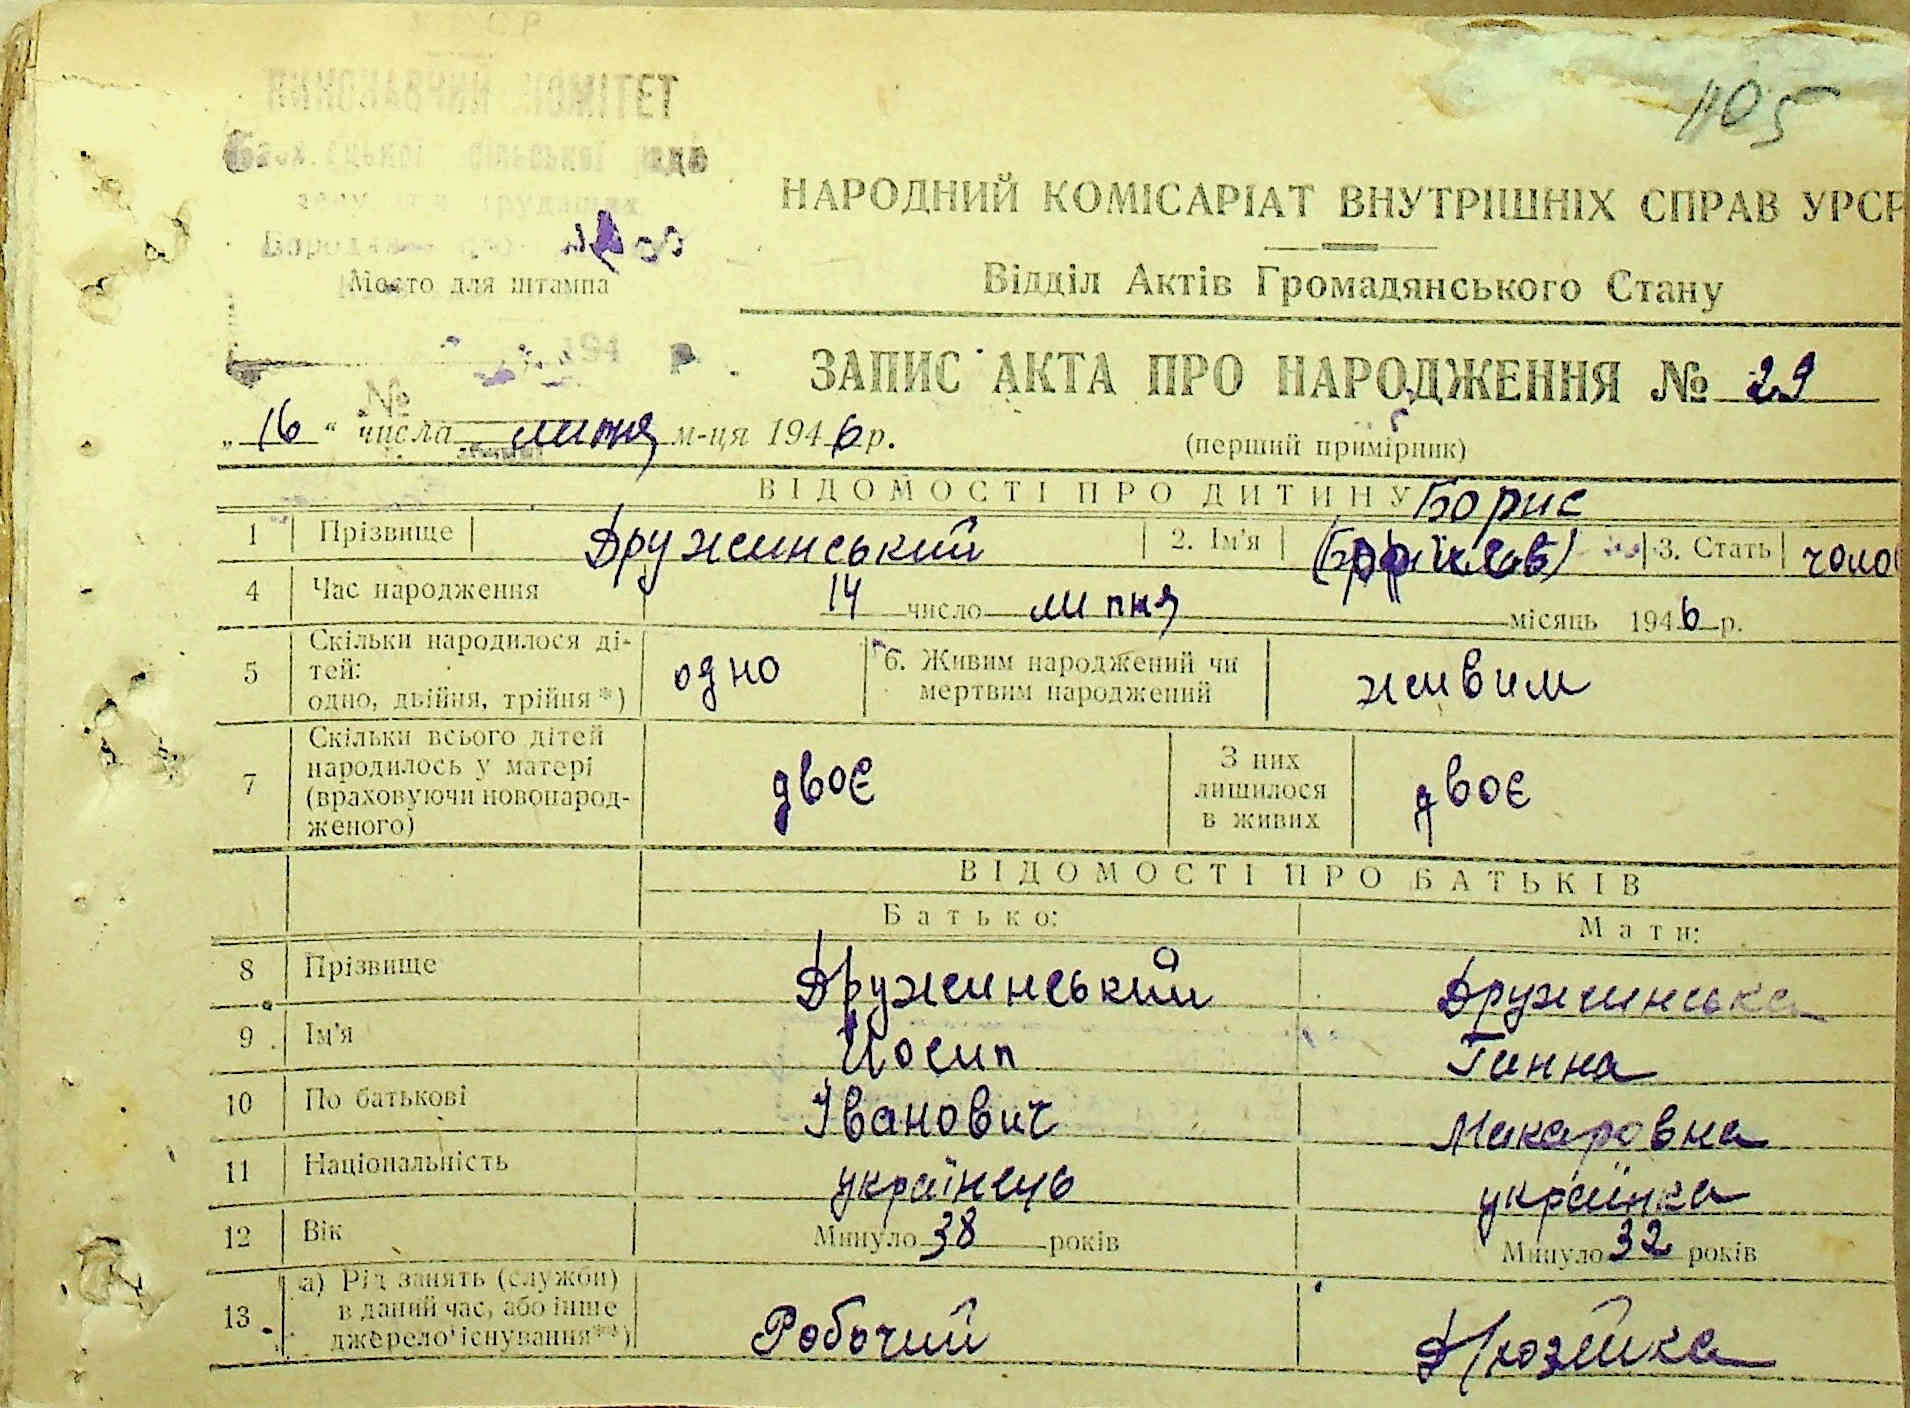 105
ВИКОНАВЧИЙ КОМІТЕТ
сільської ради
НАРОДНИЙ КОМІСАРІАТ ВНУТРІШНІХ СПРАВ УРСР
Відділ Актів Громадянського Стану
Место для штампа
194 р.
№
ЗАПИС АКТА ПРО НАРОДЖЕННЯ № 29
„16“ числа липня м-ця 1946 р.
(перший примірник)
ВІДОМОСТІ ПРО ДИТИНУ Борис
1 Прізвище Дружинський 2. Ім'я 3. Стать чоло
4 Час народження 14 число липня місяць 1946 р.
5 Скільки народилося ді-
тей:
одно, двійня, трійня*) одно 6. Живим народжений чи
мертвим народжений живим
7 Скільки всього дітей
народилось у матері
(враховуючи новонарод-
женого) двоє З них
лишилося
в живих двоє
ВІДОМОСТІ ПРО БАТЬКІВ
Батько: Мати:
8 Прізвище Дружинський Дружинська
9 Ім'я Йосип Ганна
10 По батькові Іванович Макаровна
11 Національність українець українка
12 Вік Минуло 38 років Минуло 32 років
13 а) Рід занять (служби)
в даний час, або інше
джерело існування**) Робочий